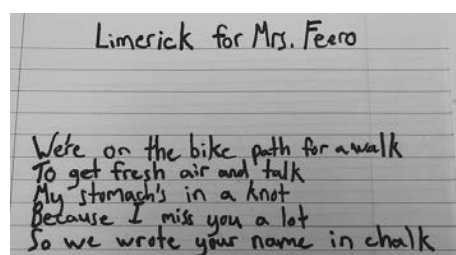 Limerick for Mrs. Feero
We're on the bike path for a walk
To get fresh air and talk
My stomach's in a knot
Because I miss you a lot
So we wrote your name in chalk